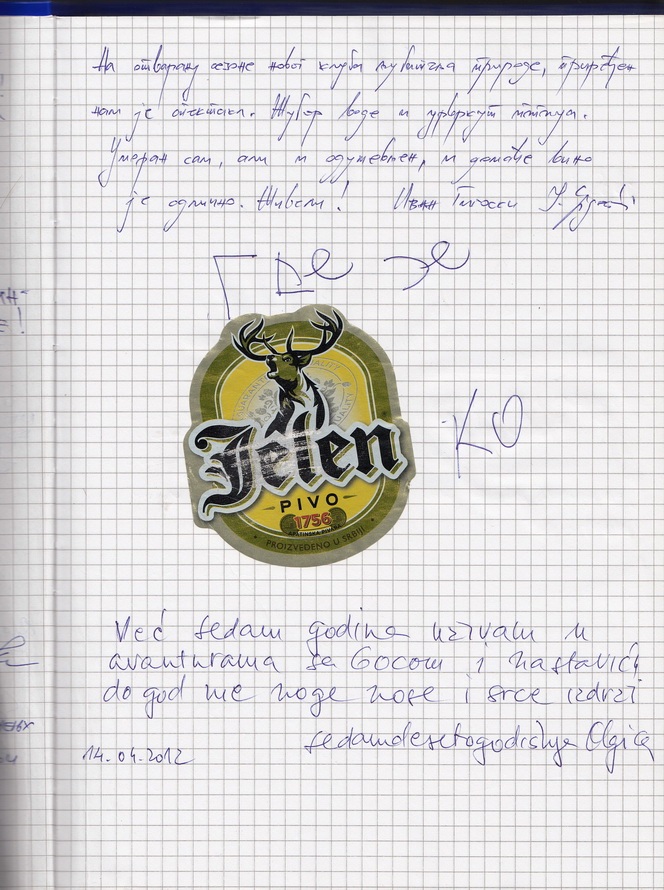 На отварању сезоне новог клуба љубитеља природе, приређен
нам је спектакл. Жубор воде и цвркут птица.
Уморан сам, али и одушевљен, и домаће вино
је одлично. Живели! Иван
Где је
Jelen
PIVO
1756
APATINSKA PIVARA
PROIZVEDENO U SRBIJI
KO
Već sedam godina uzivam u
avanturama sa Gocom i nastaviću
do god me noge nose i srce izdrzi
sedamdesetogodisnja Olgica
14.04.2012